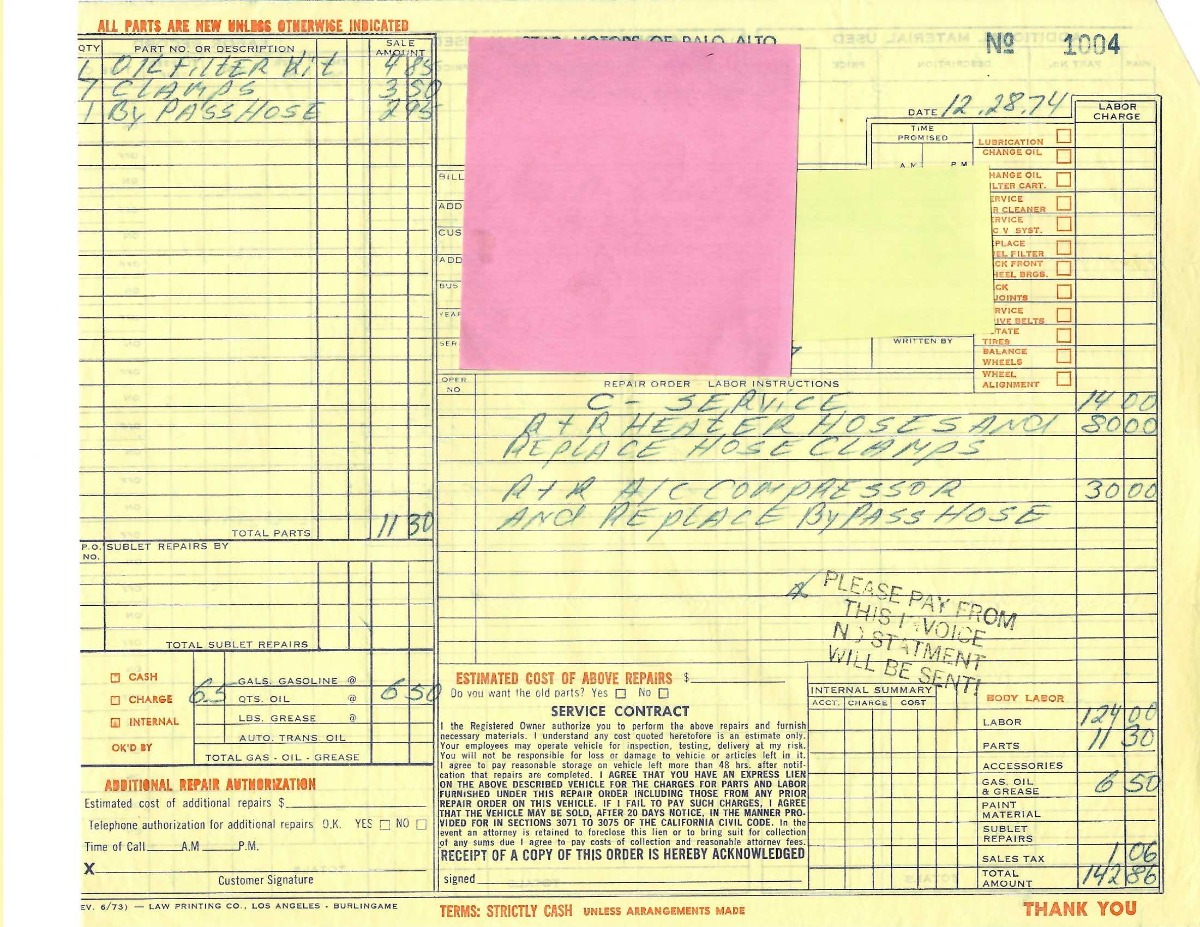 ALL PARTS ARE NEW UNLESS OTHERWISE INDICATED
QTY PART NO. OR DESCRIPTION SALE AMOUNT
1 OIL FILTER Kit 4 85
7 CLAMPS 3 50
1 By PASS HOSE 2 95
TOTAL PARTS 11 30
P.O. NO. SUBLET REPAIRS BY
TOTAL SUBLET REPAIRS
CASH
CHARGE
INTERNAL
OK'D BY
GALS. GASOLINE @
6.5 QTS. OIL @ 6 50
LBS. GREASE @
AUTO. TRANS. OIL
TOTAL GAS - OIL - GREASE
ADDITIONAL REPAIR AUTHORIZATION
Estimated cost of additional repairs $
Telephone authorization for additional repairs O.K. YES NO
Time of Call A.M P.M.
X
Customer Signature
EV. 6/73) — LAW PRINTING CO., LOS ANGELES - BURLINGAME
STAR MOTORS OF PALO ALTO
No 1004
DATE 12.28.74
LABOR CHARGE
TIME PROMISED
A.M. P M
BILL
ADD
CUS
ADD
BUS
YEAR
SER
WRITTEN BY
LUBRICATION
CHANGE OIL
HANGE OIL
LTER CART.
ERVICE
R CLEANER
ERVICE
C V SYST.
PLACE
EL FILTER
CK FRONT
HEEL BRGS.
CK
JOINTS
RVICE
IVE BELTS
TATE
TIRES
BALANCE
WHEELS
WHEEL
ALIGNMENT
OPER NO REPAIR ORDER LABOR INSTRUCTIONS
C - SERVICE 14 00
R + R HEATER HOSES AND 80 00
REPLACE HOSE CLAMPS
R + R A/C COMPRESSOR 30 00
AND REPLACE By PASS HOSE
PLEASE PAY FROM
THIS I VOICE
N STATMENT
WILL BE SENT!
ESTIMATED COST OF ABOVE REPAIRS $
Do you want the old parts? Yes No
SERVICE CONTRACT
I the Registered Owner authorize you to perform the above repairs and furnish
necessary materials. I understand any cost quoted heretofore is an estimate only.
Your employees may operate vehicle for inspection, testing, delivery at my risk.
You will not be responsible for loss or damage to vehicle or articles left in it.
I agree to pay reasonable storage on vehicle left more than 48 hrs. after notifi-
cation that repairs are completed. I AGREE THAT YOU HAVE AN EXPRESS LIEN
ON THE ABOVE DESCRIBED VEHICLE FOR THE CHARGES FOR PARTS AND LABOR
FURNISHED UNDER THIS REPAIR ORDER INCLUDING THOSE FROM ANY PRIOR
REPAIR ORDER ON THIS VEHICLE. IF I FAIL TO PAY SUCH CHARGES, I AGREE
THAT THE VEHICLE MAY BE SOLD, AFTER 20 DAYS NOTICE, IN THE MANNER PRO-
VIDED FOR IN SECTIONS 3071 TO 3075 OF THE CALIFORNIA CIVIL CODE. In the
event an attorney is retained to foreclose this lien or to bring suit for collection
of any sums due I agree to pay costs of collection and reasonable attorney fees.
RECEIPT OF A COPY OF THIS ORDER IS HEREBY ACKNOWLEDGED
signed
INTERNAL SUMMARY
ACCT. CHARGE COST
BODY LABOR
LABOR 124 00
PARTS 11 30
ACCESSORIES
GAS, OIL & GREASE 6 50
PAINT MATERIAL
SUBLET REPAIRS
SALES TAX 1 06
TOTAL AMOUNT 142 86
TERMS: STRICTLY CASH UNLESS ARRANGEMENTS MADE
THANK YOU